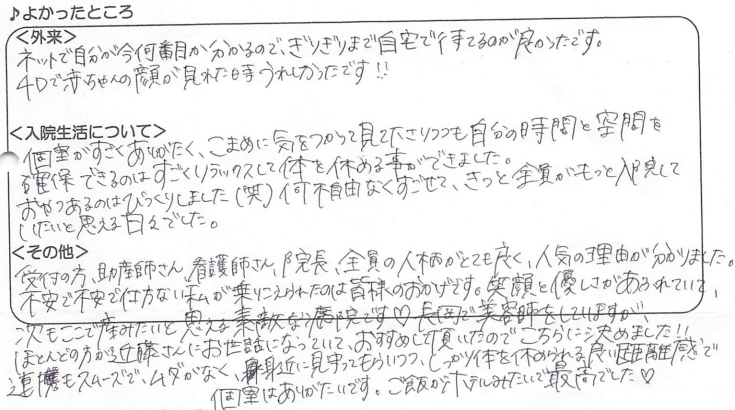 ♪よかったところ
<外来>
ネットで自分が今何番目か分かるので、ぎりぎりまで自宅で待てるのが良かったです。
4Dで赤ちゃんの顔が見れた時うれしかったです!!
<入院生活について>
個室がすごくありがたく、こまめに気をつかって見て下さりつつも自分の時間と空間を
確保できるのはすごくリラックスして体を休める事ができました。
おやつあるのはびっくりしました(笑)何不自由なくすごせて、きっと全員がもっと入院して
いたいと思える日々でした。
<その他>
受付の方、助産師さん、看護師さん、院長、全員の人柄がとても良く、人気の理由が分かりました。
不安で不安で仕方ない私が乗りこえられたのは皆様のおかげです。笑顔と優しさがあふれていて、
次もここで産みたいと思える素敵な病院です♡長岡で美容師をしていますが、
ほとんどの方が近藤さんにお世話になっていて、おすすめして頂いたのでこちらに決めました!!
連携もスムーズで、ムダがなく、身近に見守ってもらいつつ、しっかり体を休められる良い距離感で
個室はありがたいです。ご飯がホテルみたいで最高でした♡